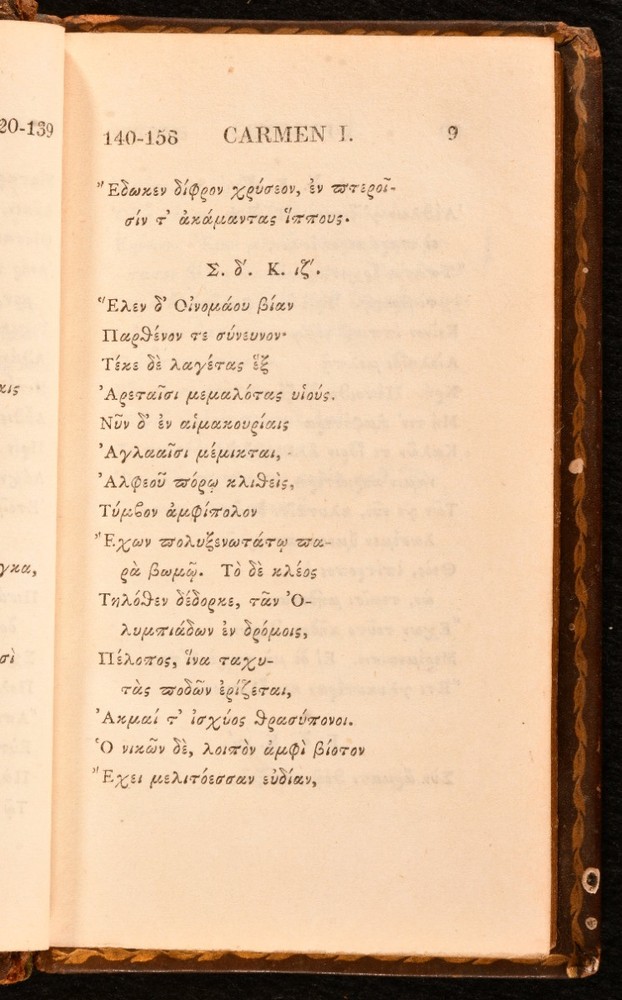 20-139
140-156 CARMEN I. 9
Ἔδωκεν δίφρον χρύσεον, ἐν ϖτεροῖ-
σίν τ' ἀκάμαντας ἵππους.
Σ. δ'. Κ. ιζ'.
Ἕλεν δ' Οἰνομάου βίαν
Παρθένον τε σύνευνον·
Τέκε δὲ λαγέτας ἓξ
Ἀρεταῖσι μεμαλότας υἱούς.
κις
Νῦν δ' ἐν αἱμακουρίαις
Ἀγλααῖσι μέμικται,
Ἀλφεοῦ ϖόρῳ κλιθεὶς,
Τύμϐον ἀμφίπολον
Ἔχων ϖολυξενωτάτῳ ϖα-
γκα,
ρὰ βωμῷ. Τὸ δὲ κλέος
Τηλόθεν δέδορκε, τᾶν Ὀ-
λυμπιάδων ἐν δρόμοις,
σὶ
Πέλοπος, ἵνα ταχυ-
τὰς ϖοδῶν ἐρίζεται,
Ἀκμαί τ' ἰσχύος θρασύπονοι.
Ὁ νικῶν δὲ, λοιπὸν ἀμφὶ βίοτον
Ἔχει μελιτόεσσαν εὐδίαν,